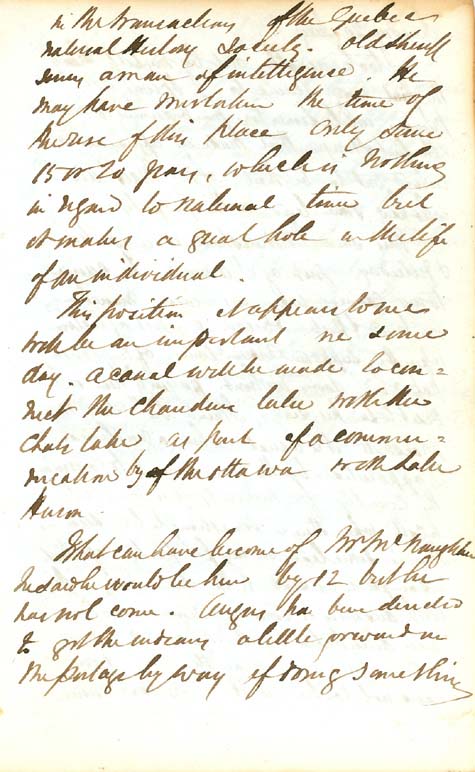 in the transactions of the Quebec
natural History Society. old Sherrif
was a man of intelligence. He
may have mistaken the time of
the rise of this place only some
15 or 20 years, which is nothing
in regard to national time but
it makes a great hole in the life
of an individual.
This position it appears to me
will be an important one some
day. a canal will be made to con=
nect the Chaudiere lake with the
Chats lake as part of a commu=
nication by of the ottawa with Lake
Huron
What can have become of Mr McNaughton
he said he would be here by 12 but he
has not come. Angus has been directed
to get the indians a little forward on
the Portage by way of doing something